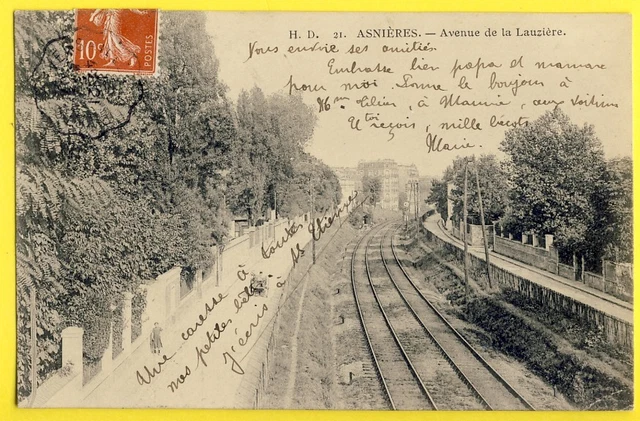 H. D. 21. ASNIÈRES. — Avenue de la Lauzière.
10c POSTES
Vous envoie ses amitiés
Embrasse bien papa et maman
pour moi. Donne le bonjour à
Mme à Maurice, aux voisins
reçois, mille becots
Marie.
Une caresse à toutes
nos petites bêtes
J'écris à St Etienne